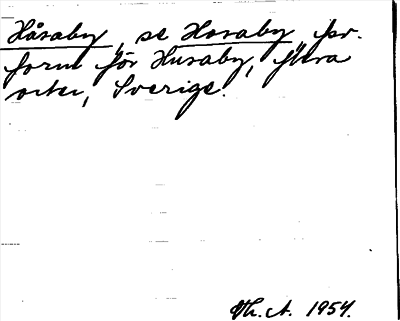 Håsaby, se Hosaby, fsv.
form för Husaby, flera
orter, Sverige.
Th. A. 1954.